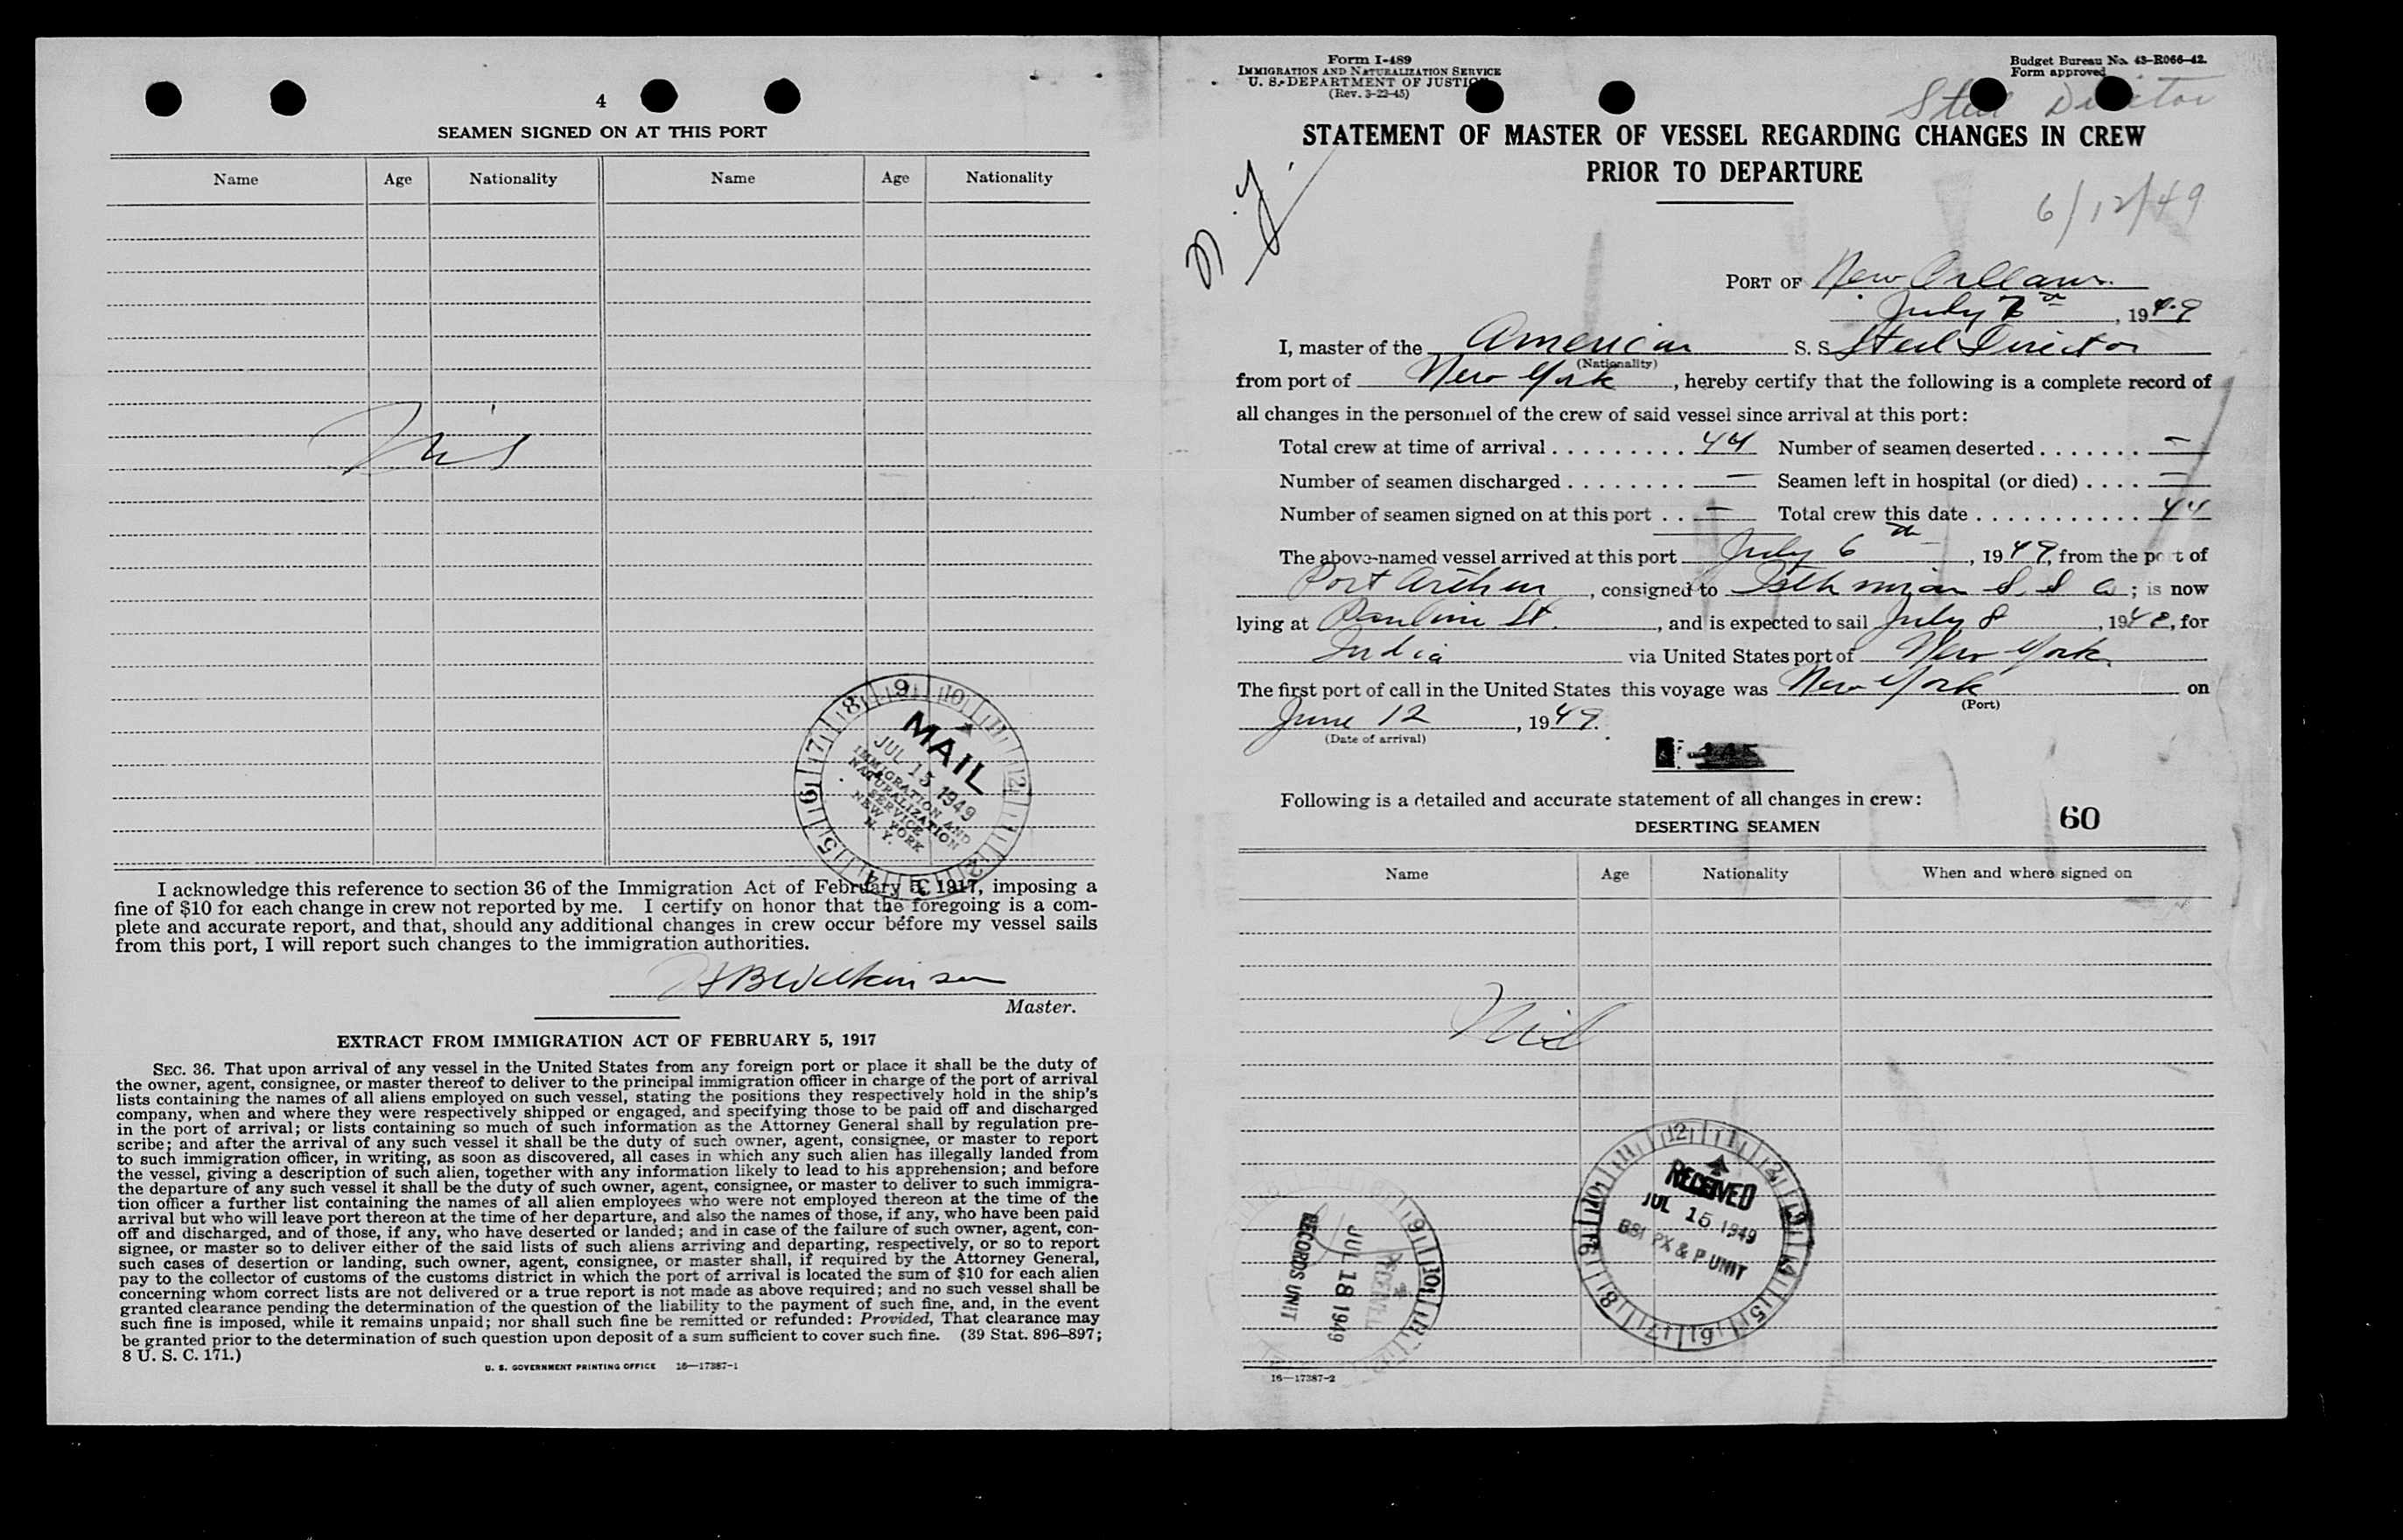 4
SEAMEN SIGNED ON AT THIS PORT
Name Age Nationality Name Age Nationality
Nil
MAIL
JUL 15 1949
IMMIGRATION AND
NATURALIZATION
SERVICE
NEW YORK
N. Y.
I acknowledge this reference to section 36 of the Immigration Act of February 5, 1917, imposing a
fine of $10 for each change in crew not reported by me. I certify on honor that the foregoing is a com-
plete and accurate report, and that, should any additional changes in crew occur before my vessel sails
from this port, I will report such changes to the immigration authorities.
HBWilkinson
Master.
EXTRACT FROM IMMIGRATION ACT OF FEBRUARY 5, 1917
SEC. 36. That upon arrival of any vessel in the United States from any foreign port or place it shall be the duty of
the owner, agent, consignee, or master thereof to deliver to the principal immigration officer in charge of the port of arrival
lists containing the names of all aliens employed on such vessel, stating the positions they respectively hold in the ship's
company, when and where they were respectively shipped or engaged, and specifying those to be paid off and discharged
in the port of arrival; or lists containing so much of such information as the Attorney General shall by regulation pre-
scribe; and after the arrival of any such vessel it shall be the duty of such owner, agent, consignee, or master to report
to such immigration officer, in writing, as soon as discovered, all cases in which any such alien has illegally landed from
the vessel, giving a description of such alien, together with any information likely to lead to his apprehension; and before
the departure of any such vessel it shall be the duty of such owner, agent, consignee, or master to deliver to such immigra-
tion officer a further list containing the names of all alien employees who were not employed thereon at the time of the
arrival but who will leave port thereon at the time of her departure, and also the names of those, if any, who have been paid
off and discharged, and of those, if any, who have deserted or landed; and in case of the failure of such owner, agent, con-
signee, or master so to deliver either of the said lists of such aliens arriving and departing, respectively, or so to report
such cases of desertion or landing, such owner, agent, consignee, or master shall, if required by the Attorney General,
pay to the collector of customs of the customs district in which the port of arrival is located the sum of $10 for each alien
concerning whom correct lists are not delivered or a true report is not made as above required; and no such vessel shall be
granted clearance pending the determination of the question of the liability to the payment of such fine, and, in the event
such fine is imposed, while it remains unpaid; nor shall such fine be remitted or refunded: Provided, That clearance may
be granted prior to the determination of such question upon deposit of a sum sufficient to cover such fine. (39 Stat. 896–897;
8 U. S. C. 171.)
U. S. GOVERNMENT PRINTING OFFICE 16—17387-1
Form I-489
IMMIGRATION AND NATURALIZATION SERVICE
U. S. DEPARTMENT OF JUSTICE
(Rev. 3-22-45)
Budget Bureau No. 43-R066-42.
Form approved
Steel Director
STATEMENT OF MASTER OF VESSEL REGARDING CHANGES IN CREW
PRIOR TO DEPARTURE
N.Y.
6/12/49
PORT OF New Orleans
July 7th, 1949
I, master of the American S. S. Steel Director
(Nationality)
from port of New York, hereby certify that the following is a complete record of
all changes in the personnel of the crew of said vessel since arrival at this port:
Total crew at time of arrival . . . . . . . . . 44 Number of seamen deserted . . . . . . . —
Number of seamen discharged . . . . . . . . — Seamen left in hospital (or died) . . . . —
Number of seamen signed on at this port . . — Total crew this date . . . . . . . . . . . 44
The above-named vessel arrived at this port July 6th, 1949, from the port of
Port Arthur, consigned to Isthmian S. S. Co; is now
lying at Pauline St., and is expected to sail July 8, 1948, for
India via United States port of New York.
The first port of call in the United States this voyage was New York on
(Port)
June 12, 1949.
(Date of arrival)
Following is a detailed and accurate statement of all changes in crew:
60
DESERTING SEAMEN
Name Age Nationality When and where signed on
Nil
RECEIVED
JUL 15 1949
BSI PX & P UNIT
RECEIVED
JUL 18 1949
RECORDS UNIT
16—17387-2